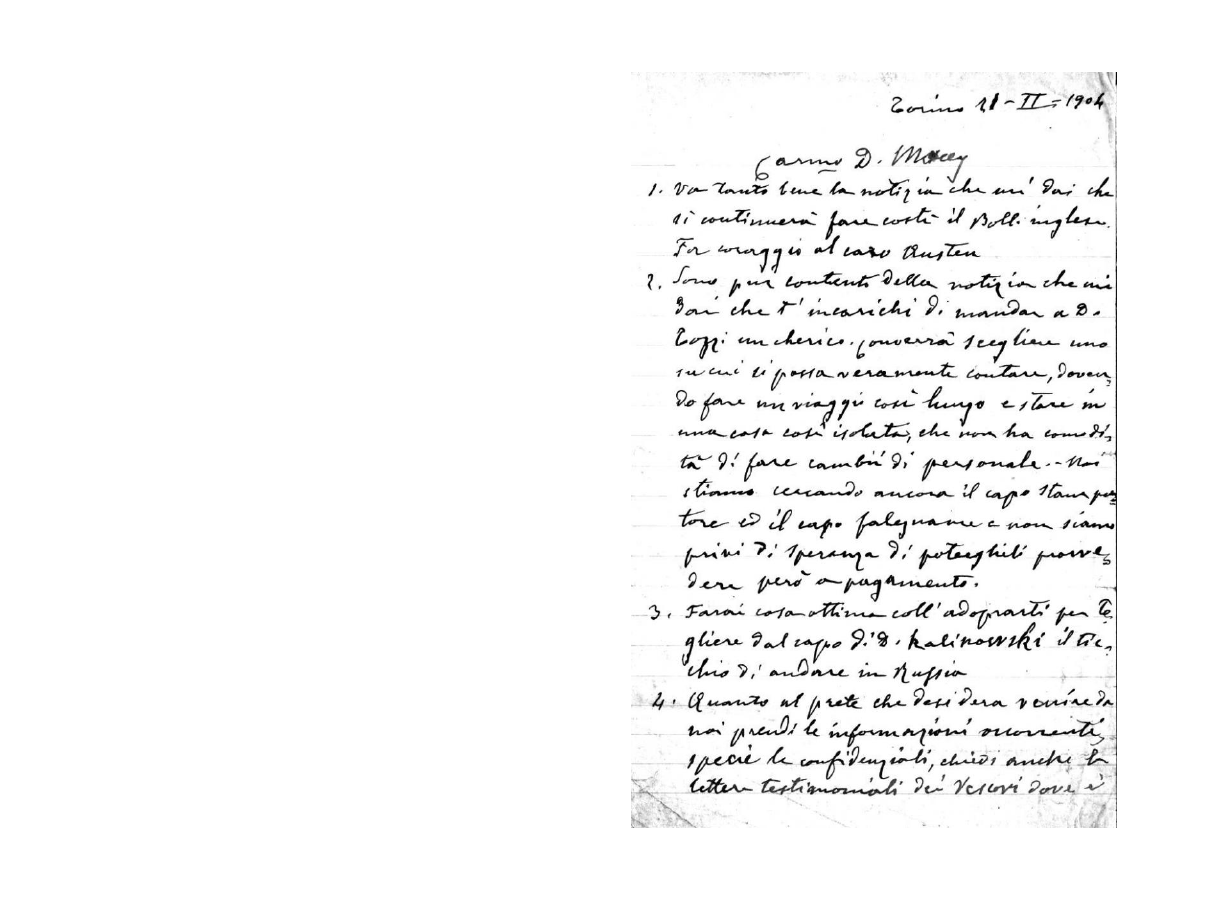 Torino 21-II-1904
Carmo D. Macey
1. Va tanto bene la notizia che mi dai che
si continuerà fare costì il Boll. inglese.
For coraggio al caro Austen
2. Sono pur contento della notizia che mi
dai che t'incarichi di mandar a D.
Tozzi un cherico. Converrà scegliere uno
su cui si possa veramente contare, doven-
do fare un viaggio così lungo e stare in
una casa così isolata, che non ha comodi-
tà di fare cambii di personale. - Noi
stiamo cercando ancora il capo stampa-
tore ed il capo falegname e non siamo
privi di speranza di poteeglieli provve-
dere però a pagamento.
3. Farai cosa ottima coll'adoprarti per to-
gliere dal capo di D. Kalinowski il tic-
chio di andare in Russia
4. Quanto al prete che desidera venire da
noi prendi le informazioni occorrenti,
specie le confidenziali, chiedi anche le
lettere testimoniali dei Vescovi dove è